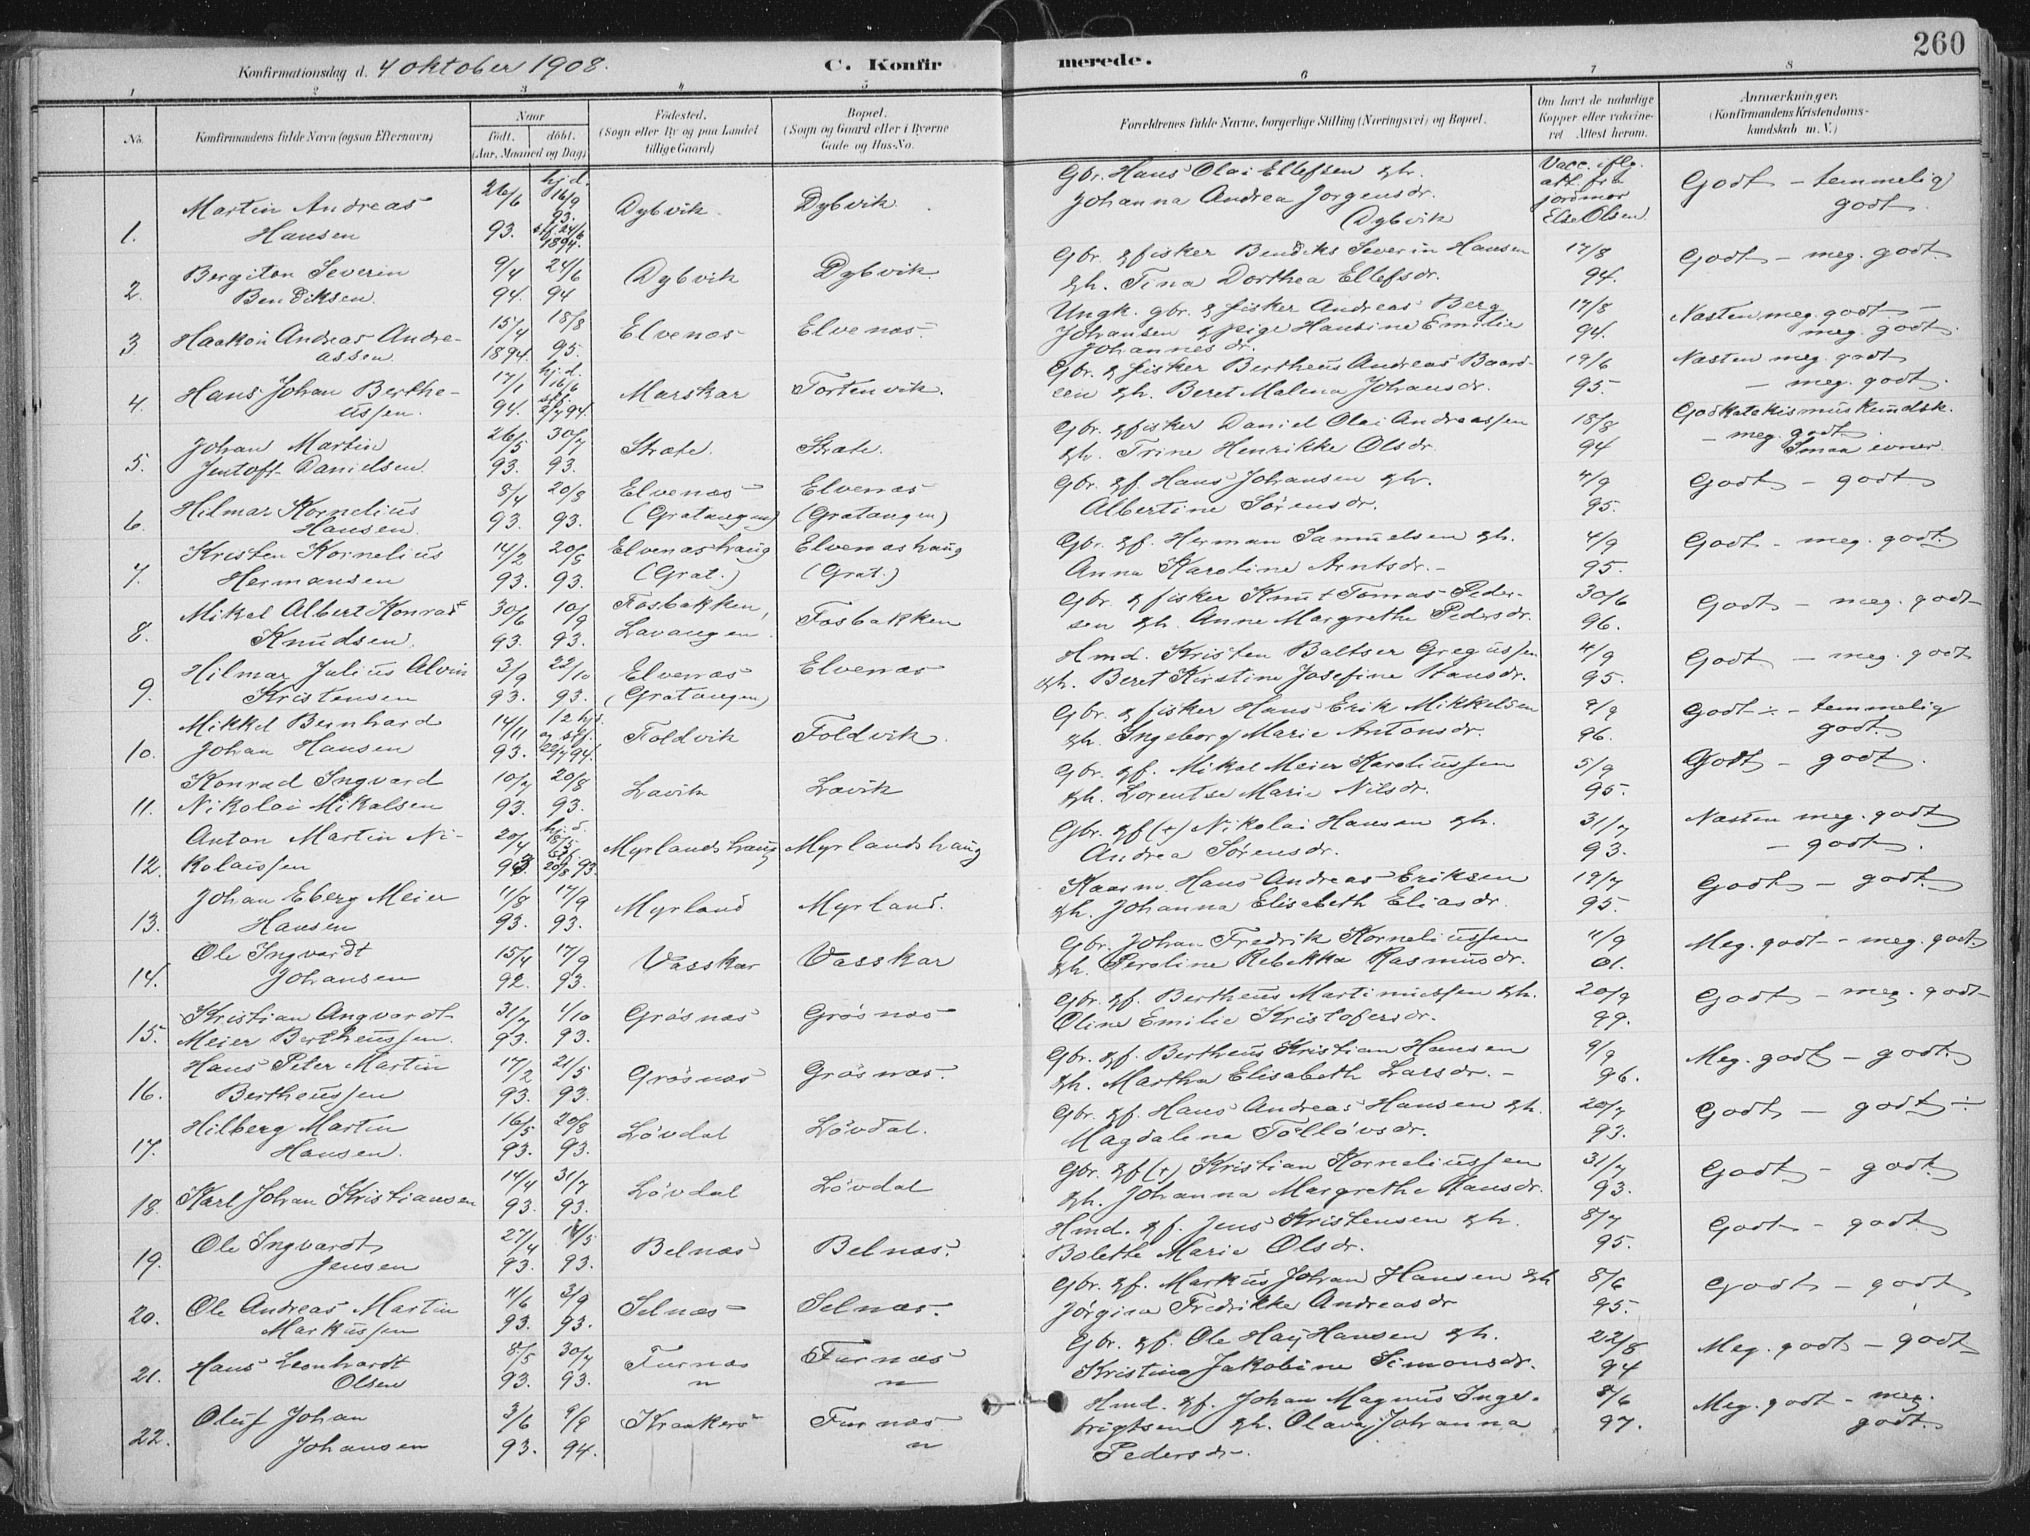 260
Konfirmationsdag d. 4 oktober 1908. C. Konfirmerede.
1 2 3 4 5 6 7 8
No. Konfirmandens fulde Navn (ogsaa Efternavn) Naar Födt. döbt. (Aar, Maaned og Dag) Födested. (Sogn eller By og paa Landet tillige Gaard) Bopæl. (Sogn og Gaard eller i Byerne Gade og Hus-No. Forældrenes fulde Navne, borgerlige Stilling (Næringsvei) og Bopæl. Om havt de naturlige Kopper eller vakcineret. Attest herom. Anmærkninger. (Konfirmandens Kristendomskundskab m. V.)
1. Martin Andreas Hansen 26/6 93. hj.d. 16/9 93. 24/6 1894. Dybvik. Dybvik. Gbr. Hans Olai Ellefsen & h. Johanna Andrea Jorgensdr. (Dybvik Vacc. iflg. att. fra jordmor Else Olsen Godt - temmelig godt.
2. Bergiton Severin Bendiksen. 9/4 94. 24/6 94 Dybvik Dybvik. Gbr. & fisker Bendiks Severin Hansen & h. Tina Dorthea Ellefsdr. 17/8 94. Godt - meg. godt
3 Haakon Andreas Andreassen 15/4 1894. 18/8 95. Elvenæs Elvenæs. Ungk. gbr. & fisker Andreas Berg Johansen & pige Hansine Emilie Johannesdr. 17/8 94. Næsten meg. godt - meg. godt.
4. Hans Johan Bertheussen. 17/1 94. hj.d. 16/6 stf. 2/7 94. Marskar Tortenvik. Gbr. & fisker Bertheus Andreas Baardsen & h. Beret Malena Johansdr. 19/6 95. Næsten meg. godt - meg. godt.
5. Johan Martin Jentoft Danielsen. 26/5 93. 30/7 93. Stræte. Stræte. Gbr. & fisker Daniel Olai Andreassen & h. Trine Henrikke Olsdr. 18/8 94 God katekismuskundsk. - meg. godt. Smaa evner.
6. Hilmar Kornelius Hansen. 8/4 93. 20/8 93. Elvenæs (Gratangen) Elvenæs (Gratangen) Gbr. & f. Hans Johansen & h. Albertine Sørensdr. 4/9 95. Godt - godt
7. Kristen Kornelius Hermansen 14/2 93. 20/8 93. Elvenæshaug (Grat.) Elvenæshaug (Grat.) Gbr. & f. Herman Samuelsen & h. Anna Karoline Arntsdr. - 4/9 95. Godt - meg. godt.
8. Mikal Albert Konrad Knudsen. 30/6 93. 10/9 93. Fosbakken, Lavangen. Fosbakken Gbr. & fisker Knut Tomas Pedersen & h. Anne Margrethe Pedersdr. 30/6 96. Godt - meg. godt
9. Hilmar Julius Alvin Kristensen 3/9 93. 22/10 93. Elvenæs (Gratangen) Elvenæs Hmd. Kristen Baltser Gregussen & h. Beret Kirstine Josefine Hansdr. 4/9 95. Godt - meg. godt
10. Mikkel Bernhard Johan Hansen 14/11 93. 12 hj. og stf. 22/7 94. Foldvik Foldvik. Gbr. & fisker Hans Erik Mikkelsen & h. Ingeborg Marie Antonsdr. 9/9 96. Godt ÷ - temmelig godt.
11. Konrad Ingvard Nikolai Mikalsen 10/7 93. 20/8 93. Lavik Lavik Gbr. & f. Mikal Meier Karoliussen & h. Lorentse Marie Nilsdr. 5/9 95. Godt - godt.
12. Anton Martin Nikolaissen 20/4 93. hj.d. 18/5 stf. 20/8 93. Myrlandshaug Myrlandshaug Gbr. & f (+) Nikolai Hansen & h. Andrea Sørensdr. 31/7 93. Næsten meg. godt - godt.
13. Johan Eberg Meier Hansen 11/8 93. 17/9 93. Myrland Myrland. Kaarm. Hans Andreas Eriksen & h. Johanna Elisabeth Eliasdr. 19/7 95. Godt - godt.
14. Ole Ingvardt Johansen 15/4 92. 17/9 93. Vasskar Vasskar Gbr. Johan Fredrik Korneliussen & h. Peroline Rebekka Rasmusdr. 11/9 01. Meg. godt - meg. godt.
15. Kristian Angvardt Meier Bertheussen. 31/7 93. 1/10 93. Grøsnæs Grøsnæs Gbr. & f. Bertheus Martinussen & h. Oline Emilie Kristofersdr. 20/9 99. Godt - meg. godt
16. Hans Peter Martin Bertheussen 17/2 93. 21/5 93. Grøsnæs Grøsnæs. Gbr. & f. Bertheus Kristian Hansen & h. Martha Elisabeth Larsdr. - 9/9 96. Meg. godt - godt.
17. Hilberg Martin Hansen. 16/5 93. 20/8 93. Løvdal Løvdal. Gbr. & f. Hans Andreas Hansen & h. Magdalena Tolløvsdr. 20/7 93. Godt - godt ÷
18. Karl Johan Kristiansen 14/4 93. 31/7 93. Løvdal Løvdal Gbr. & f (+) Kristian Korneliussen & h. Johanna Margrethe Hansdr. 31/7 93. Godt - godt
19. Ole Ingvardt Jensen 27/4 93. 14/5 93. Belnæs Belnæs. Hmd. & f. Jens Kristensen & h. Bolette Marie Olsdr. 8/7 95. Godt - godt
20. Ole Andreas Martin Markussen 11/6 93. 3/9 93. Selnæs Selnæs. Gbr. & f. Markus Johan Hansen & h Jørgine Fredrikke Andreasdr 8/6 95. Godt - godt
21. Hans Leonhardt Olsen 8/5 93. 30/7 93. Furnæs " Furnæs " Gbr. & f. Ole Haij Hansen & h. Kristine Jakobine Simonsdr. 22/8 94 Meg. godt - godt
22. Oluf Johan Johansen 3/6 93. 9/9 94. Kraakerø Furnæs " Hmd. & f. Johan Magnus Ingebrigtsen & h. Olava Johanna Pedersdr. 8/6 97. Meg. godt - meg. godt.